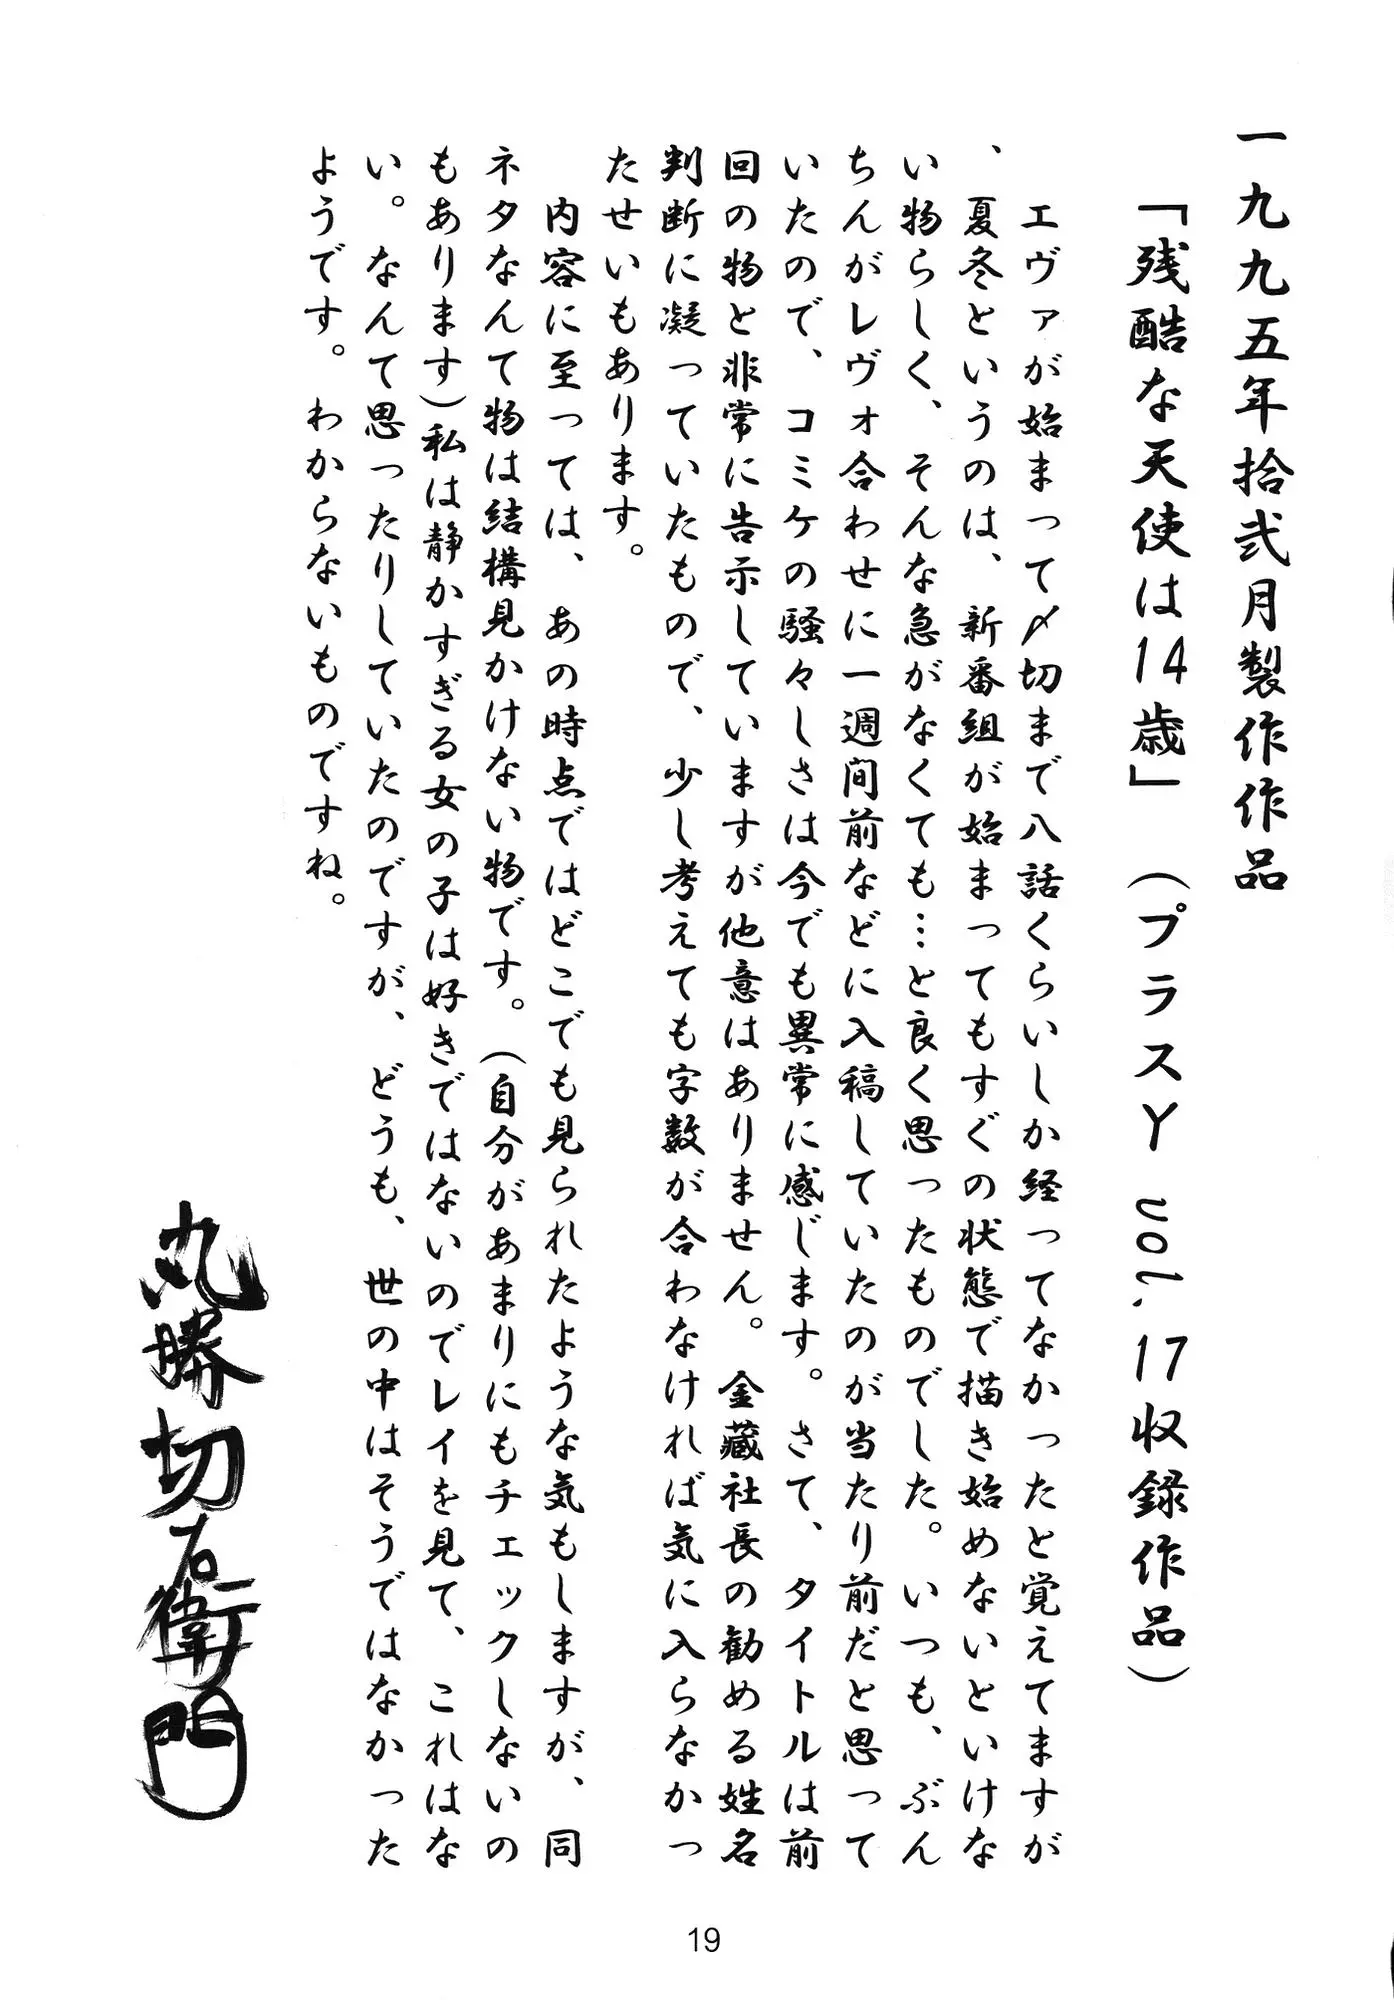 一九九五年拾弐月製作作品
「残酷な天使は14歳」（プラスY vol.17収録作品）
エヴァが始まって〆切まで八話くらいしか経ってなかったと覚えてますが
、夏冬というのは、新番組が始まってもすぐの状態で描き始めないといけな
い物らしく、そんな急がなくても…と良く思ったものでした。いつも、ぶん
ちんがレヴォ合わせに一週間前などに入稿していたのが当たり前だと思って
いたので、コミケの騒々しさは今でも異常に感じます。さて、タイトルは前
回の物と非常に告示していますが他意はありません。金蔵社長の勧める姓名
判断に凝っていたもので、少し考えても字数が合わなければ気に入らなかっ
たせいもあります。
内容に至っては、あの時点ではどこでも見られたような気もしますが、同
ネタなんて物は結構見かけない物です。（自分があまりにもチェックしないの
もあります）私は静かすぎる女の子は好きではないのでレイを見て、これはな
い。なんて思ったりしていたのですが、どうも、世の中はそうではなかった
ようです。わからないものですね。
丸勝切右衛門
19